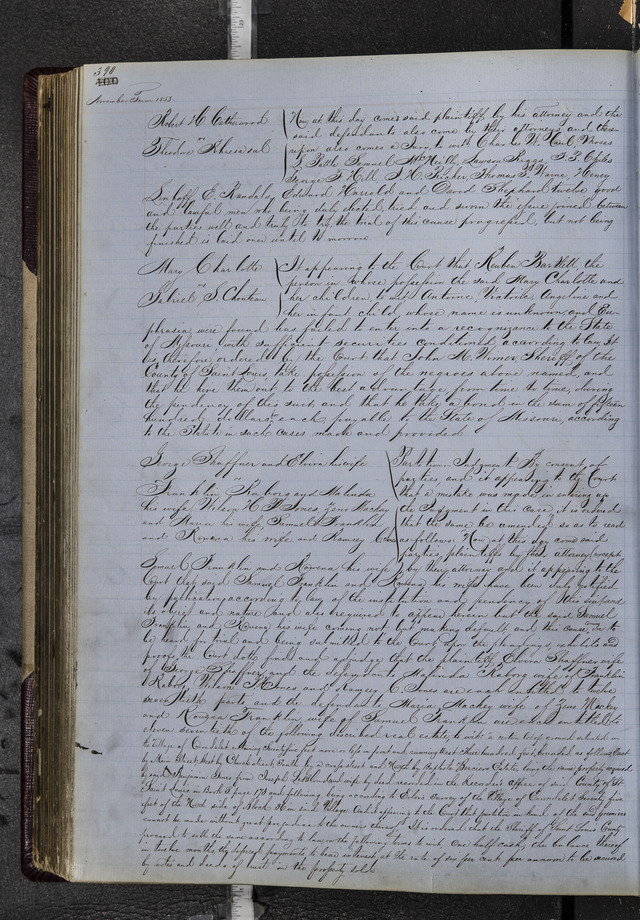 390
November Term 1853
Robert H Catherwood
vs
Theodore
Now at this day comes said plaintiff by his attorney and the
said defendants also come by their attorneys and there
upon also comes a Jury, to wit, Charles W.
Samuel McNeith, Lawson
George F Hill, J H Thomas Henry
E. Randolph, Edward Harrold and David Shephard twelve good
and lawful men who being duly elected tried and sworn the issue joined between
the parties well and truly to try, the trial of this cause progressed, but not being
finished is laid over until to morrow.
Mary Charlotte
vs
Gabriel S Chouteau
It appearing to the Court that Reuben Bartlett, the
person in whose possession the said Mary Charlotte and
her children, to wit, Antoine, Victoria, Angeline and
her infant child whose name is unknown and Eu-
phrasia, were found has failed to enter into a recognizance to the State
of Missouri with sufficient securities conditioned according to law, It
is therefore ordered by the Court that John M. Wimer Sheriff of the
County of Saint Louis take possession of the negroes above named, and
that he hire them out to the best advantage from time to time, during
the pendency of this suit and that he take a bond in the sum of fifteen
hundred dollars each payable to the State of Missouri, according
to the Statute in such cases made and provided
George Shaffner and Elvira his wife
vs
Franklin Raborg and Malinda
his wife, Wilson H. Jones, Zeno Mackey
and Maria his wife, Samuel Franklin
and Rowena his wife and Ramsey C Jones
Partition. Judgment By consent of
parties and it appearing to the Court
that a mistake was made in entering up
the Judgment in this case, it is ordered
that the same be amended so as to read
as follows. Now at this day come said
parties, plaintiffs by their attorney except,
Samuel Franklin and Rowena his wife by their attorney and it appearing to the
Court that said Samuel Franklin and Rowena his wife have been duly notified
by publication according to law of the institution and pendency of this suit and
its object and nature and also required to appear herein but the said Samuel
Franklin and Rowena his wife coming not but making default and this cause coming on to
be heard for trial and being submitted to the Court upon the pleadings exhibits and
proofs, the Court doth find and adjudge that the plaintiff Elvira Shaffner wife
of George Shaffner, and the defendants Malinda Raborg wife of Franklin
Raborg, Wilson H Jones and Ramsey C Jones are each entitled to
parts and the defendants Maria Mackey wife of Zeno Mackey
and Rowena Franklin, wife of Samuel Franklin are each entitled to
of the following described real estate, to wit, a certain lot of ground situated in
the Village of Carondelet containing feet more or less in front and running West Three hundred feet, bounded as follows East
by Main Street West by
Benjamin from Joseph recorded in the Recorders office of said County of St
Louis in Book page 173 and following being according to survey of the Village of Carondelet Seventy five
feet of the North side of Block in said Village. And it appearing to the Court that partition in kind of the said premises
cannot be made without great prejudice to the owners thereof. It is ordered that the Sheriff of Saint Louis County
proceed to sell the same according to law on the following terms to wit. One half cash, the balance thereof
in twelve months, the deferred payments to bear interest at the rate of six per cent per annum to be secured
by notes and deeds of trust on the property sold.